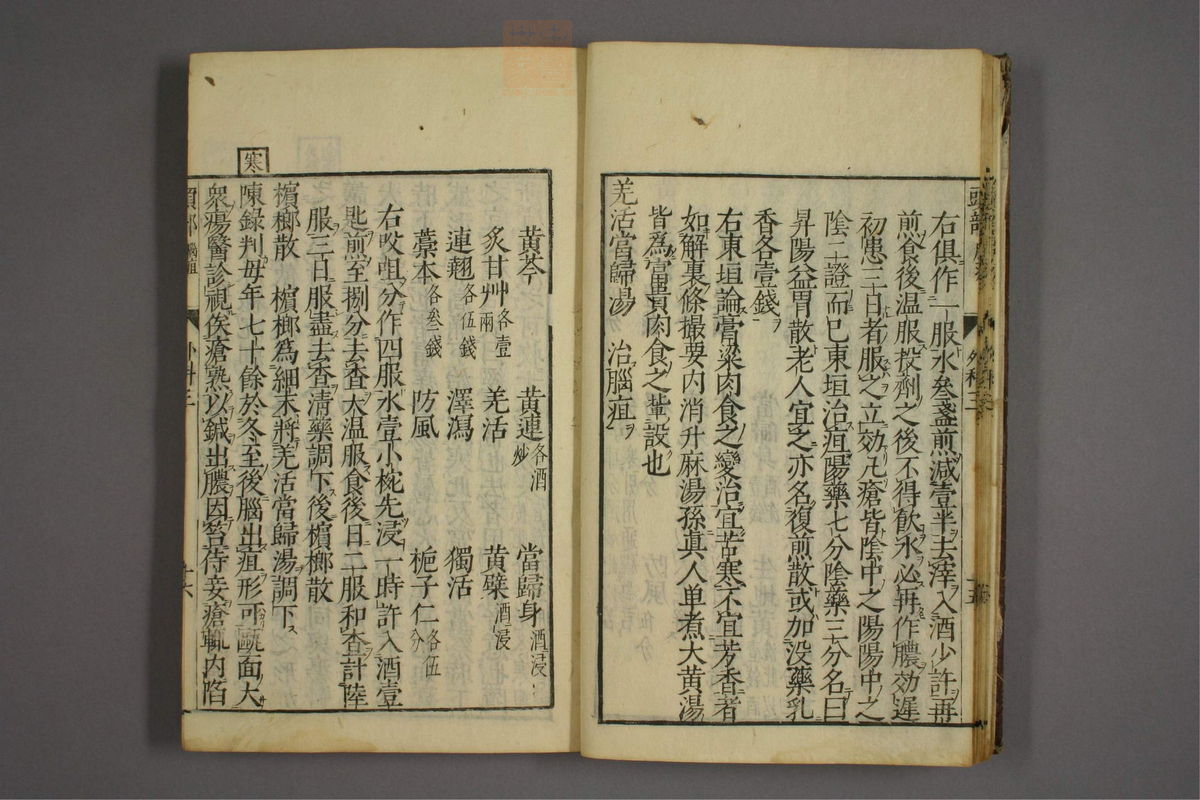 頭部
外科三
十五
右俱作一服水叁盞煎減壹半去滓入酒少許再
煎食後溫服投劑之後不得飲水必再作膿効遲
初患三日者服之立効凡瘡皆陰中之陽陽中之
陰二證而已東垣治疽陽藥七分陰藥三分名曰
昇陽益胃散老人宜之亦名復煎散或加没藥乳
香各壹錢
右東垣論膏粱肉食之變治宜苦寒不宜芳香者
如解裏條撮要內消升麻湯孫真人单煮大黄湯
皆為富貴肉食之輩設也
羌活當歸湯 治腦疽
黄芩 黄連各酒炒 當歸身酒浸
炙甘艸各壹兩 羌活 黄蘗酒浸
連翹各伍錢 澤瀉 獨活
藁本各叁錢 防風 梔子仁各伍分
右㕮咀分作四服水壹小椀先浸一時許入酒壹
匙煎至捌分去査大温服食後日二服和査計陸
服三日服盡去査清藥調下後檳榔散
檳榔散 檳榔為細末將羌活當歸湯調下
寒
陳錄判母年七十餘於冬至後腦出疽形可甌面大
衆瘍醫診視俟瘡熟以鍼出膿因笞侍妾瘡輒内陷
頭部 腦疽
外科三
十六